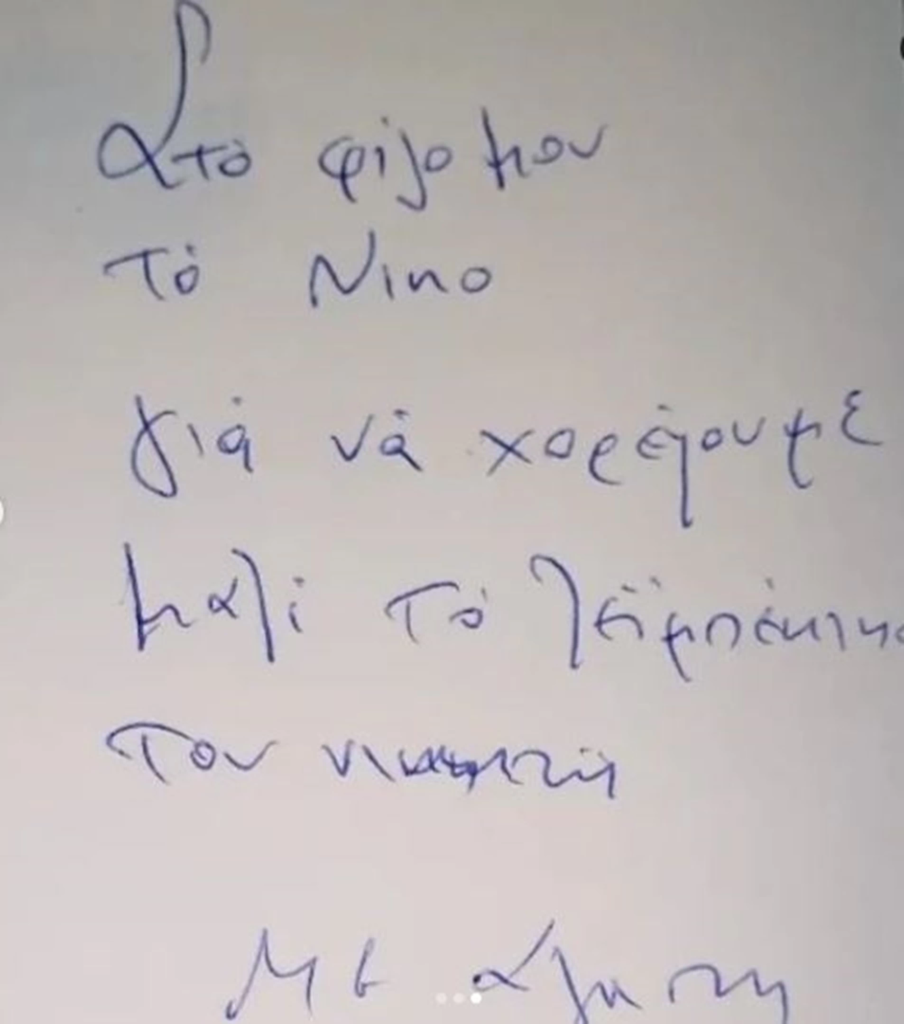 Στὸ φίλο μου
τὸ Νίκο
γιὰ νὰ χορέψουμε
μαζὶ τὸ ζεϊμπέκικο
τοῦ νικητῆ
Μὲ ἀγάπη